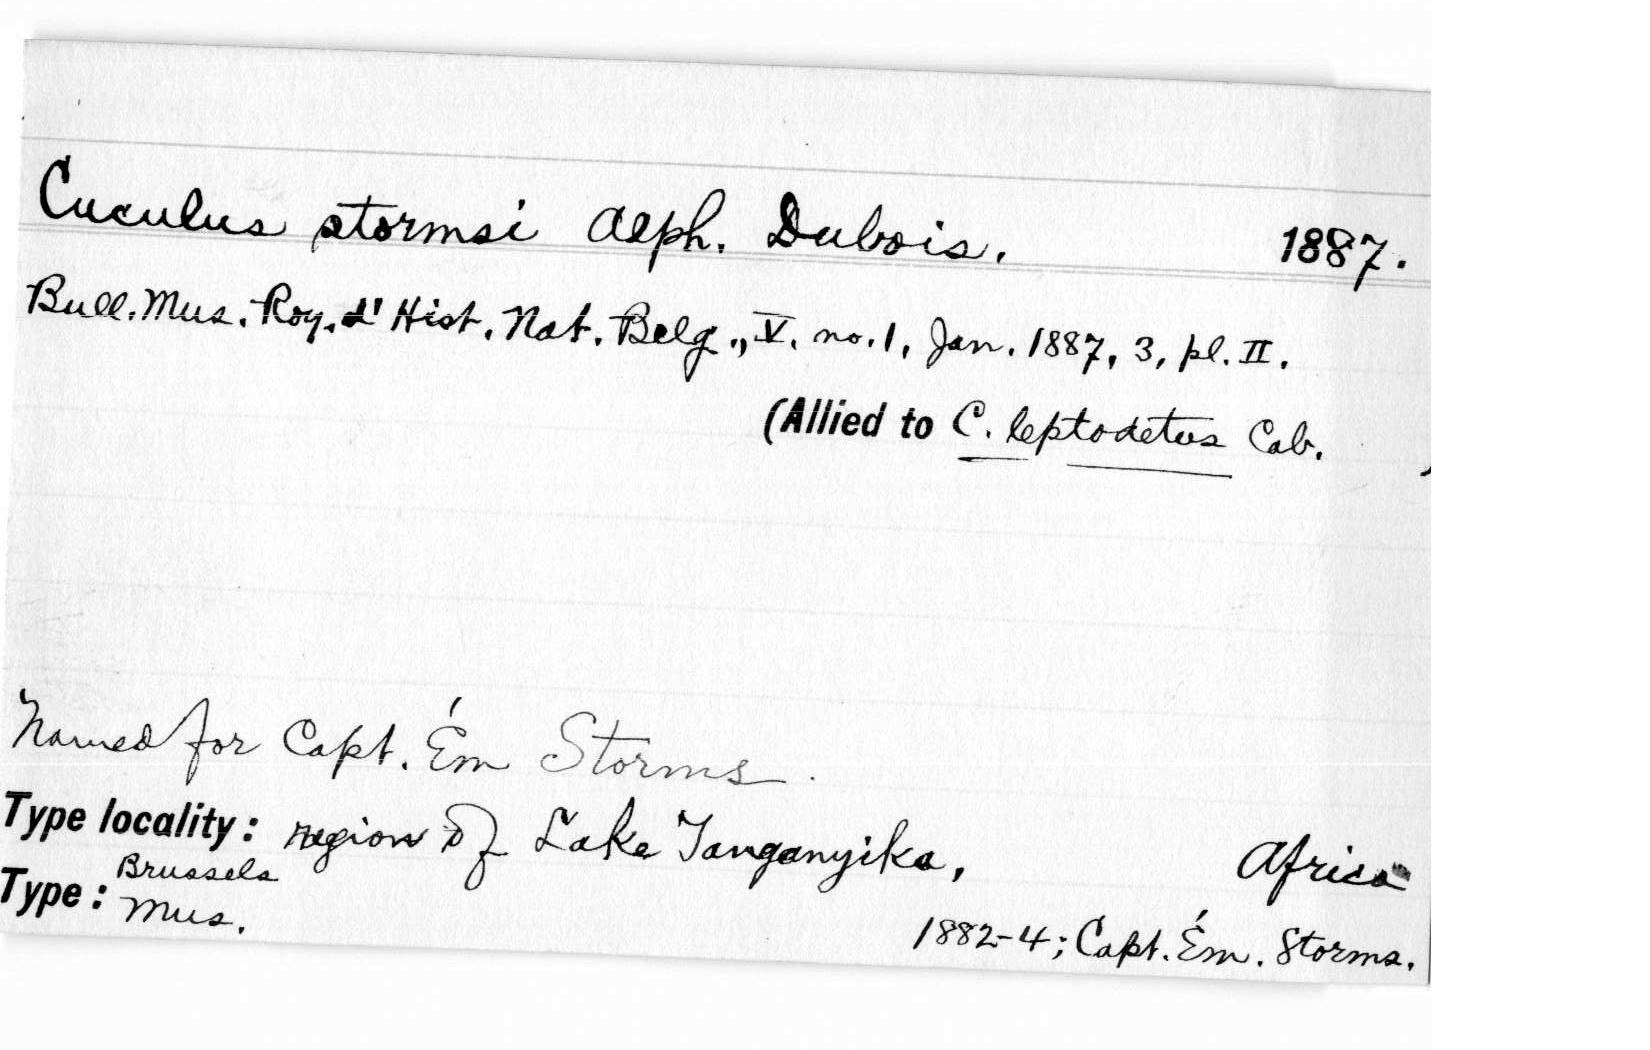 Cuculus stormsi Alph. Dubois. 1887.
Bull. Mus. Roy. d' Hist. Nat. Belg., V. no. 1, Jan. 1887, 3, pl. II.
(Allied to C. leptodetus Cab. )
Named for Capt. Ém Storms.
Type locality: region of Lake Tanganyika, Africa
Type: Brussels Mus.
1882-4; Capt. Ém. Storms.